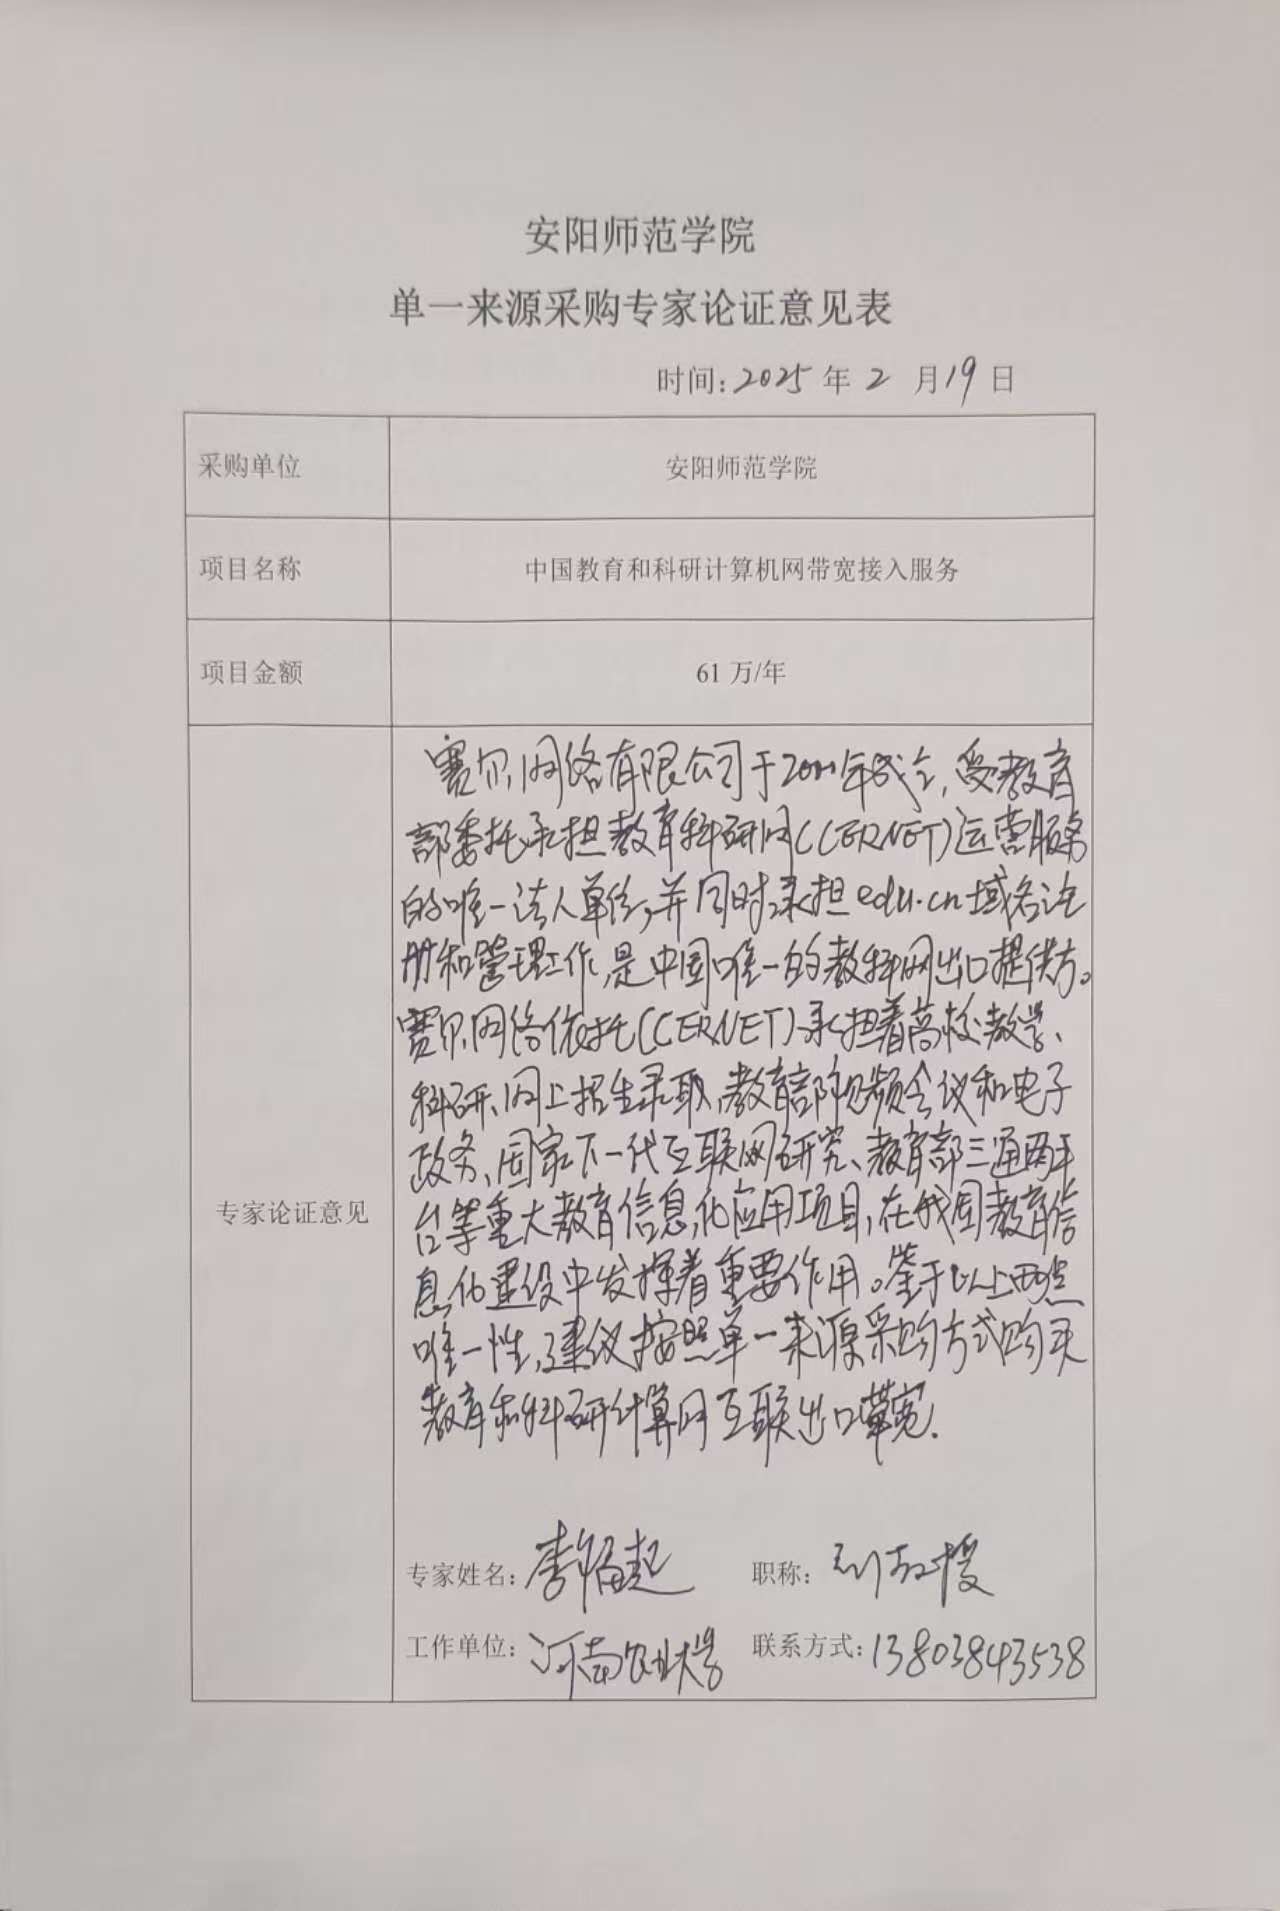 安阳师范学院
单一来源采购专家论证意见表
时间:2025年2月19日
采购单位 安阳师范学院
项目名称 中国教育和科研计算机网带宽接入服务
项目金额 61万/年
专家论证意见
赛尔网络有限公司于2000年成立,受教育
部委托承担教育科研网(CERNET)运营服务
的唯一法人单位,并同时承担edu.cn域名注
册和管理工作,是中国唯一的教科网出口提供方。
赛尔网络依托(CERNET)承担着高校教学、
科研、网上招生录取、教育部视频会议和电子
政务、国家下一代互联网研究、教育部三通两平
台等重大教育信息化应用项目,在我国教育信
息化建设中发挥着重要作用。鉴于以上两点
唯一性,建议按照单一来源采购方式购买
教育和科研计算网互联出口带宽.
专家姓名:李福超 职称:副教授
工作单位:河南农业大学 联系方式:13803843538